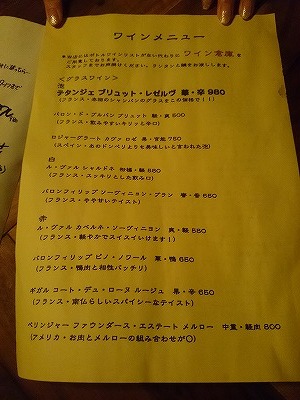 ワインメニュー
※当店にはボトルワインリストがない代わりに ワイン倉庫 を
ご用意しております。
スタッフまでお声掛けください。
<グラスワイン>
泡
テタンジェ ブリュット・レゼルヴ 華・辛 980
(フランス・本格のシャンパンのグラスをこの価格で!!)
バロン・ド・ブルバン ブリュット 500
(フランス・飲みやすいキリッと辛口)
ロジャーグラート カヴァ ロゼ 750
(スペイン・あのドンペリよりも美味しいと言われた泡)
白
ル・ヴァル シャルドネ 550
(フランス・スッキリとした飲み口)
バロンフィリップ ソーヴィニョン・ブラン 650
(フランス・ややせいテイスト)
赤
ル・ヴァル カベルネ・ソーヴィニョン 550
(フランス・軽やかでスイスイいけます!)
バロンフィリップ ピノ・ノワール 650
(フランス・鴨肉と相性バッチリ)
ギガル コート・デュ・ローヌ ルージュ 黒・辛 650
(フランス・南仏らしいスパイシーなテイスト)
ベリンジャー ファウンダース・エステート メルロー 中重・穏肉 800
(アメリカ・お肉とメルローの組み合わせが◎)